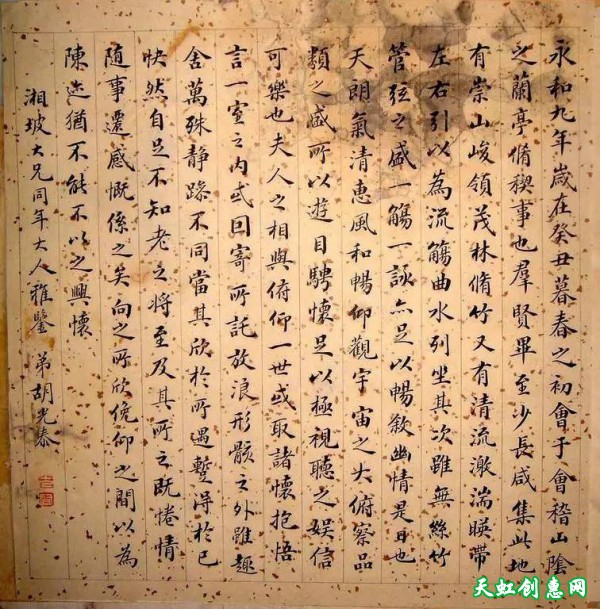 永和九年歲在癸丑暮春之初會于會稽山陰
之蘭亭脩稧事也羣賢畢至少長咸集此地
有崇山峻領茂林脩竹又有清流激湍暎帶
左右引以為流觴曲水列坐其次雖無絲竹
管弦之盛一觴一詠亦足以暢敘幽情是日也
天朗氣清惠風和暢仰觀宇宙之大俯察品
類之盛所以遊目騁懷足以極視聽之娛信
可樂也夫人之相與俯仰一世或取諸懷抱悟
言一室之內或因寄所託放浪形骸之外雖趣
舍萬殊静躁不同當其欣於所遇蹔得於己
怏然自足不知老之将至及其所之既惓情
随事遷感慨係之矣向之所欣俛仰之間以為
陳迹猶不能不以之興懷
湘坡大兄同年大人雅鑒 弟胡光泰
天虹创惠网